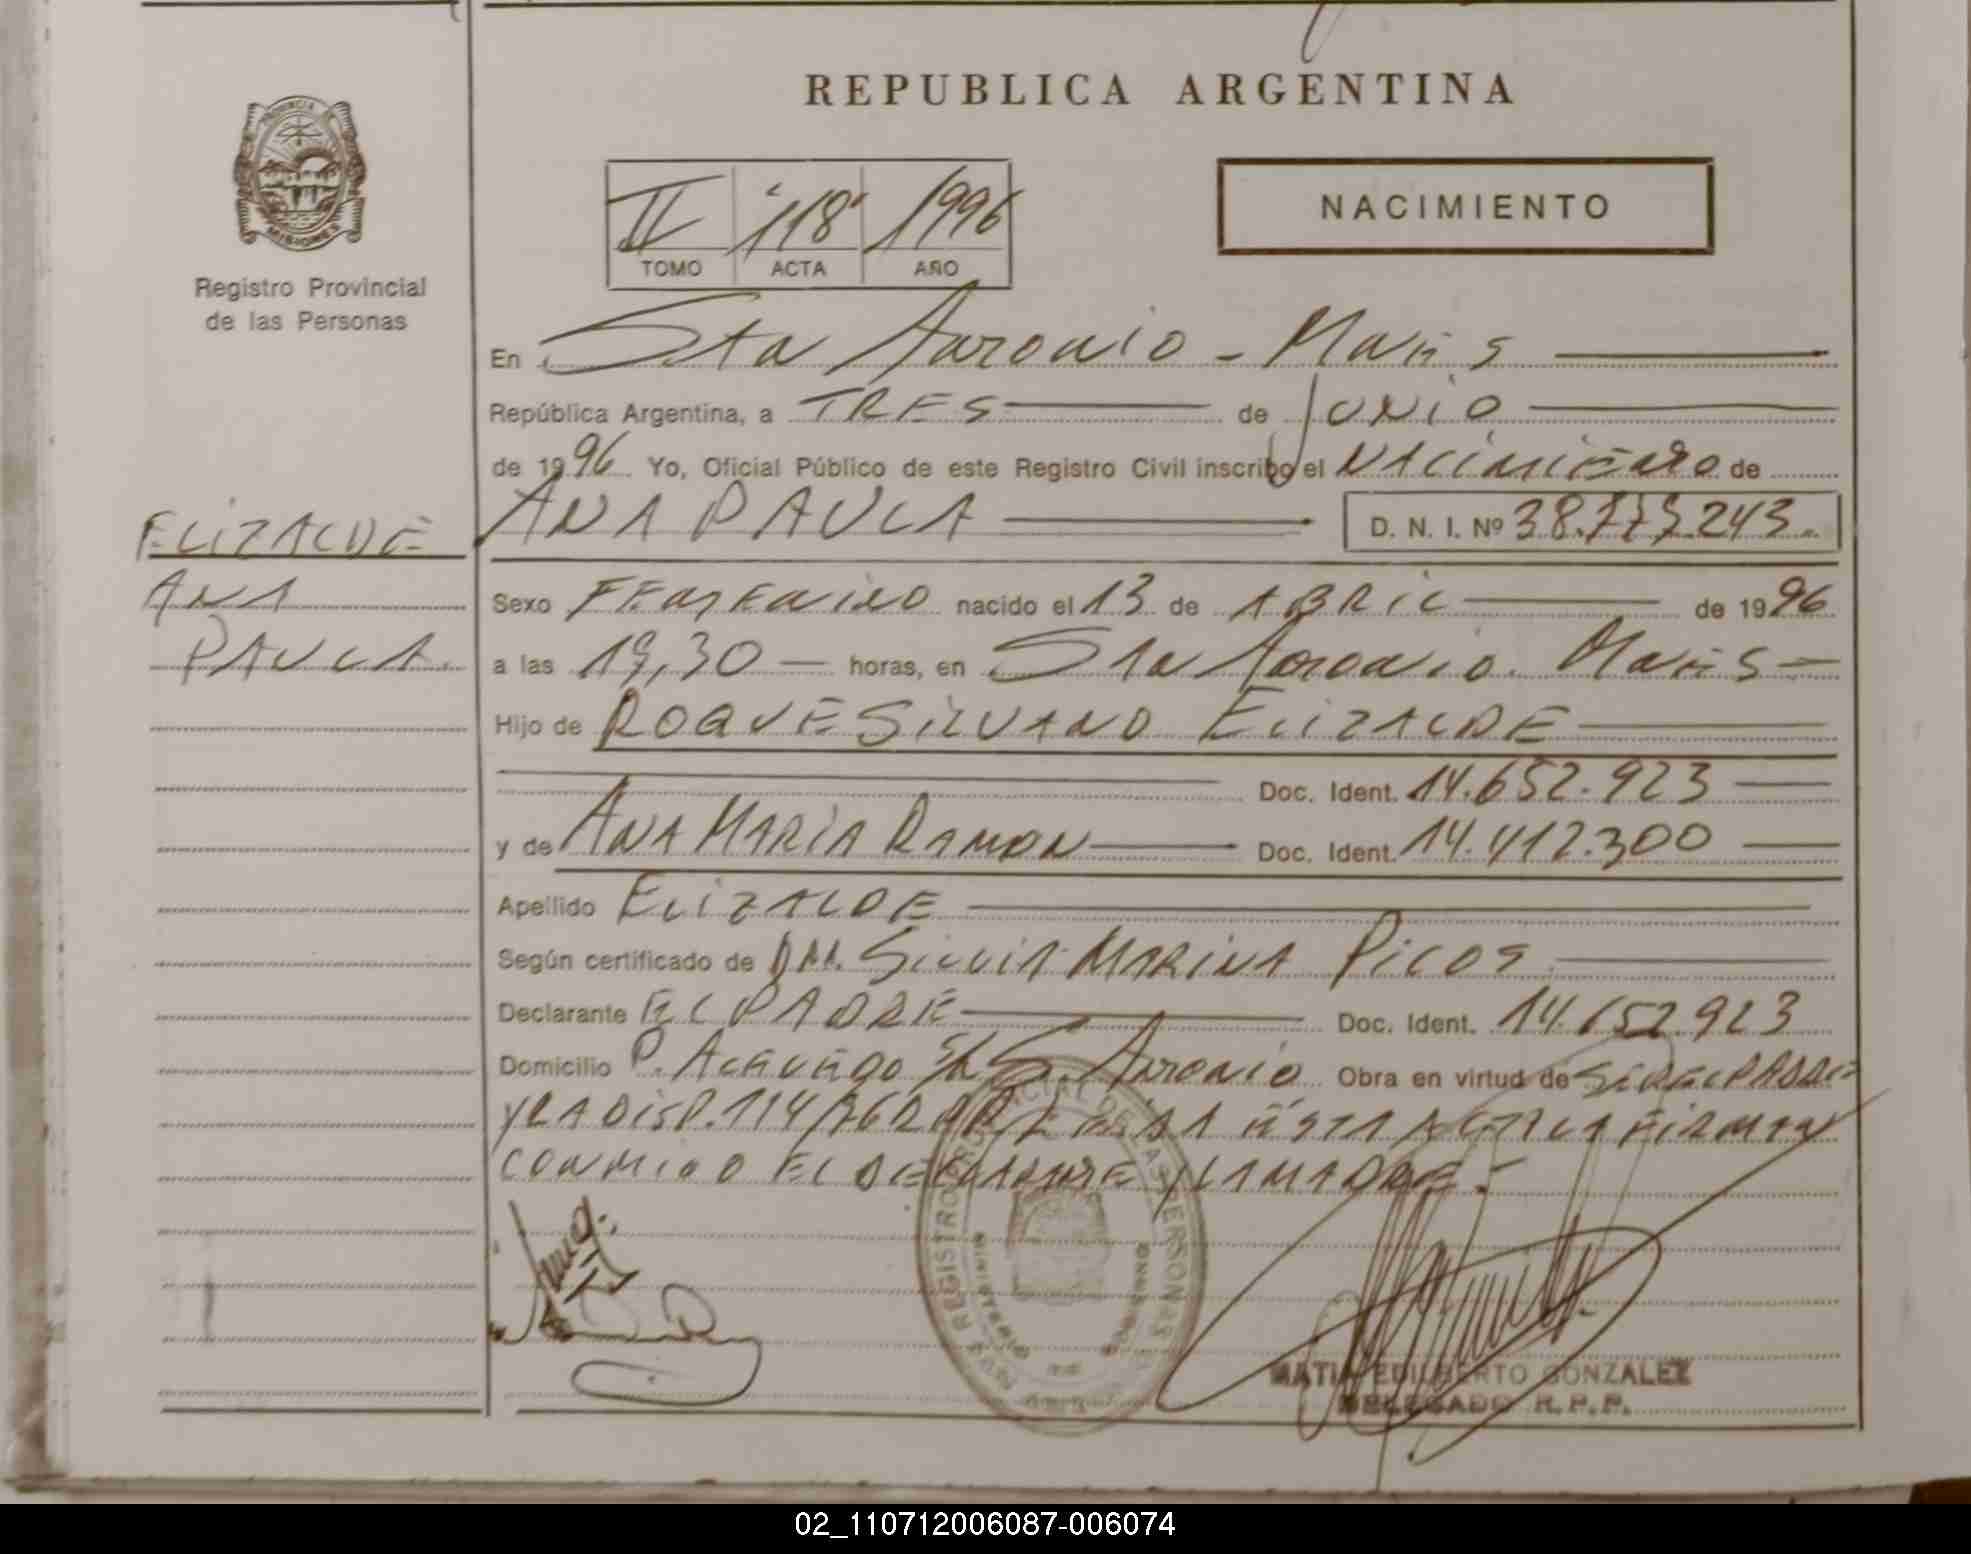 REPUBLICA ARGENTINA
PROVINCIA
MISIONES
Registro Provincial
de las Personas
II 118 1996
TOMO ACTA AÑO
NACIMIENTO
En Sta Antonio - Mnes
República Argentina, a TRES de JUNIO
de 1996 Yo, Oficial Público de este Registro Civil inscribo el NACIMIENTO de
ANA PAULA D. N. I. Nº 38.777.243
ELIZALDE
ANA
PAULA
Sexo FEMENINO nacido el 13 de ABRIL de 1996
a las 19,30 horas, en Sta Antonio. Mnes
Hijo de ROQUE SILVANO ELIZALDE
Doc. Ident. 14.652.923
y de ANA MARIA RAMON Doc. Ident. 14.412.300
Apellido ELIZALDE
Según certificado de DRA. SILVIA MARINA PICOS
Declarante EL PADRE Doc. Ident. 14.652.923
Domicilio P. S. Antonio Obra en virtud de
Y LA DISP. 114/ ESTA ACTA LA FIRMAN
CONMIGO EL DECLARANTE Y LA MADRE.-
REGISTRO PROVINCIAL DE LAS PERSONAS
MINISTERIO GOBIERNO
MATIA EDILBERTO GONZALEZ
DELEGADO R.P.P.
02_110712006087-006074